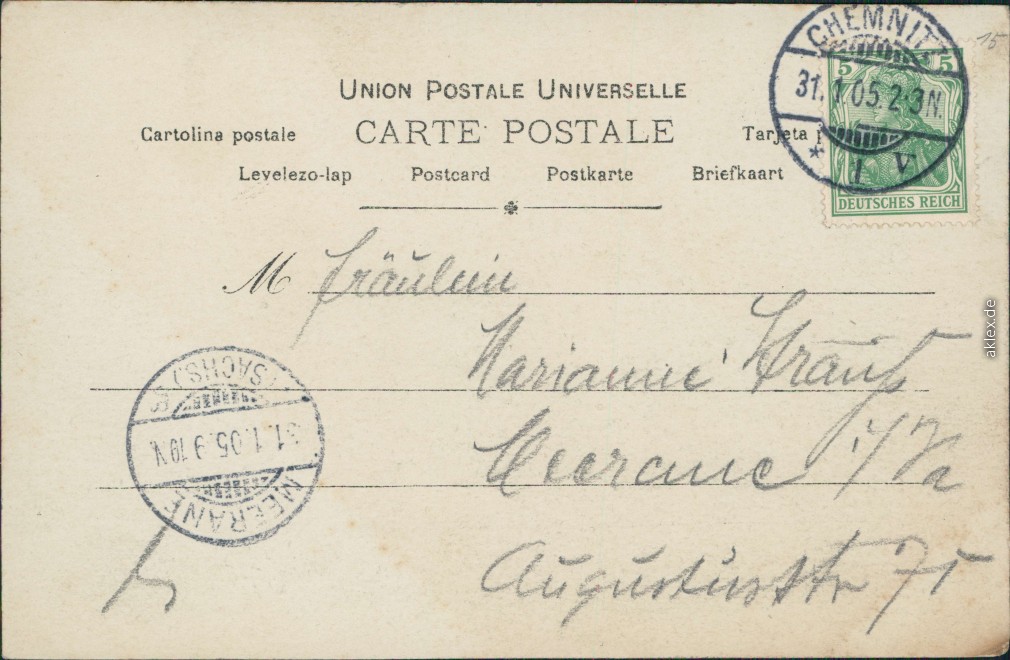 CHEMNITZ
31.1.05.2-3N.
* 1 1
5 5
DEUTSCHES REICH
15
UNION POSTALE UNIVERSELLE
Cartolina postale CARTE POSTALE Tarjeta
Levelezo-lap Postcard Postkarte Briefkaart
M Fräulein
Marianne Strauß
Meerane i/Sa
Auguststr 75
MEERANE (SACHS.)
31.1.05.9 10N.
aklex.de